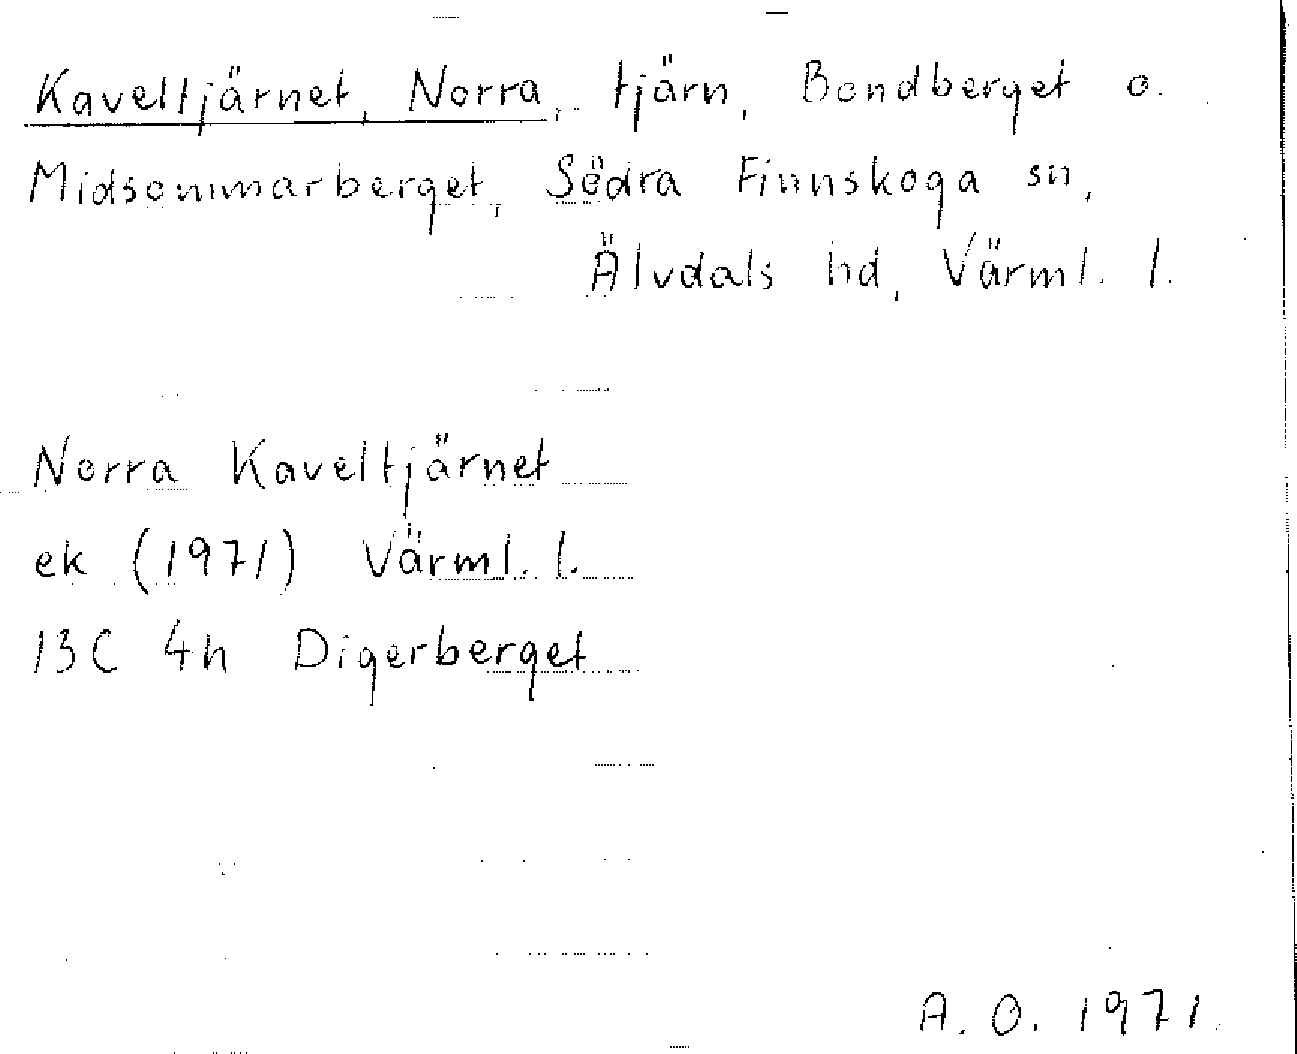 Kaveltjärnet, Norra, tjärn, Bondberget o.
Midsommarberget, Södra Finnskoga sn,
Älvdals hd, Värml. l.
Norra Kaveltjärnet
ek (1971) Värml. l.
13C 4h Digerberget
A. O. 1971.